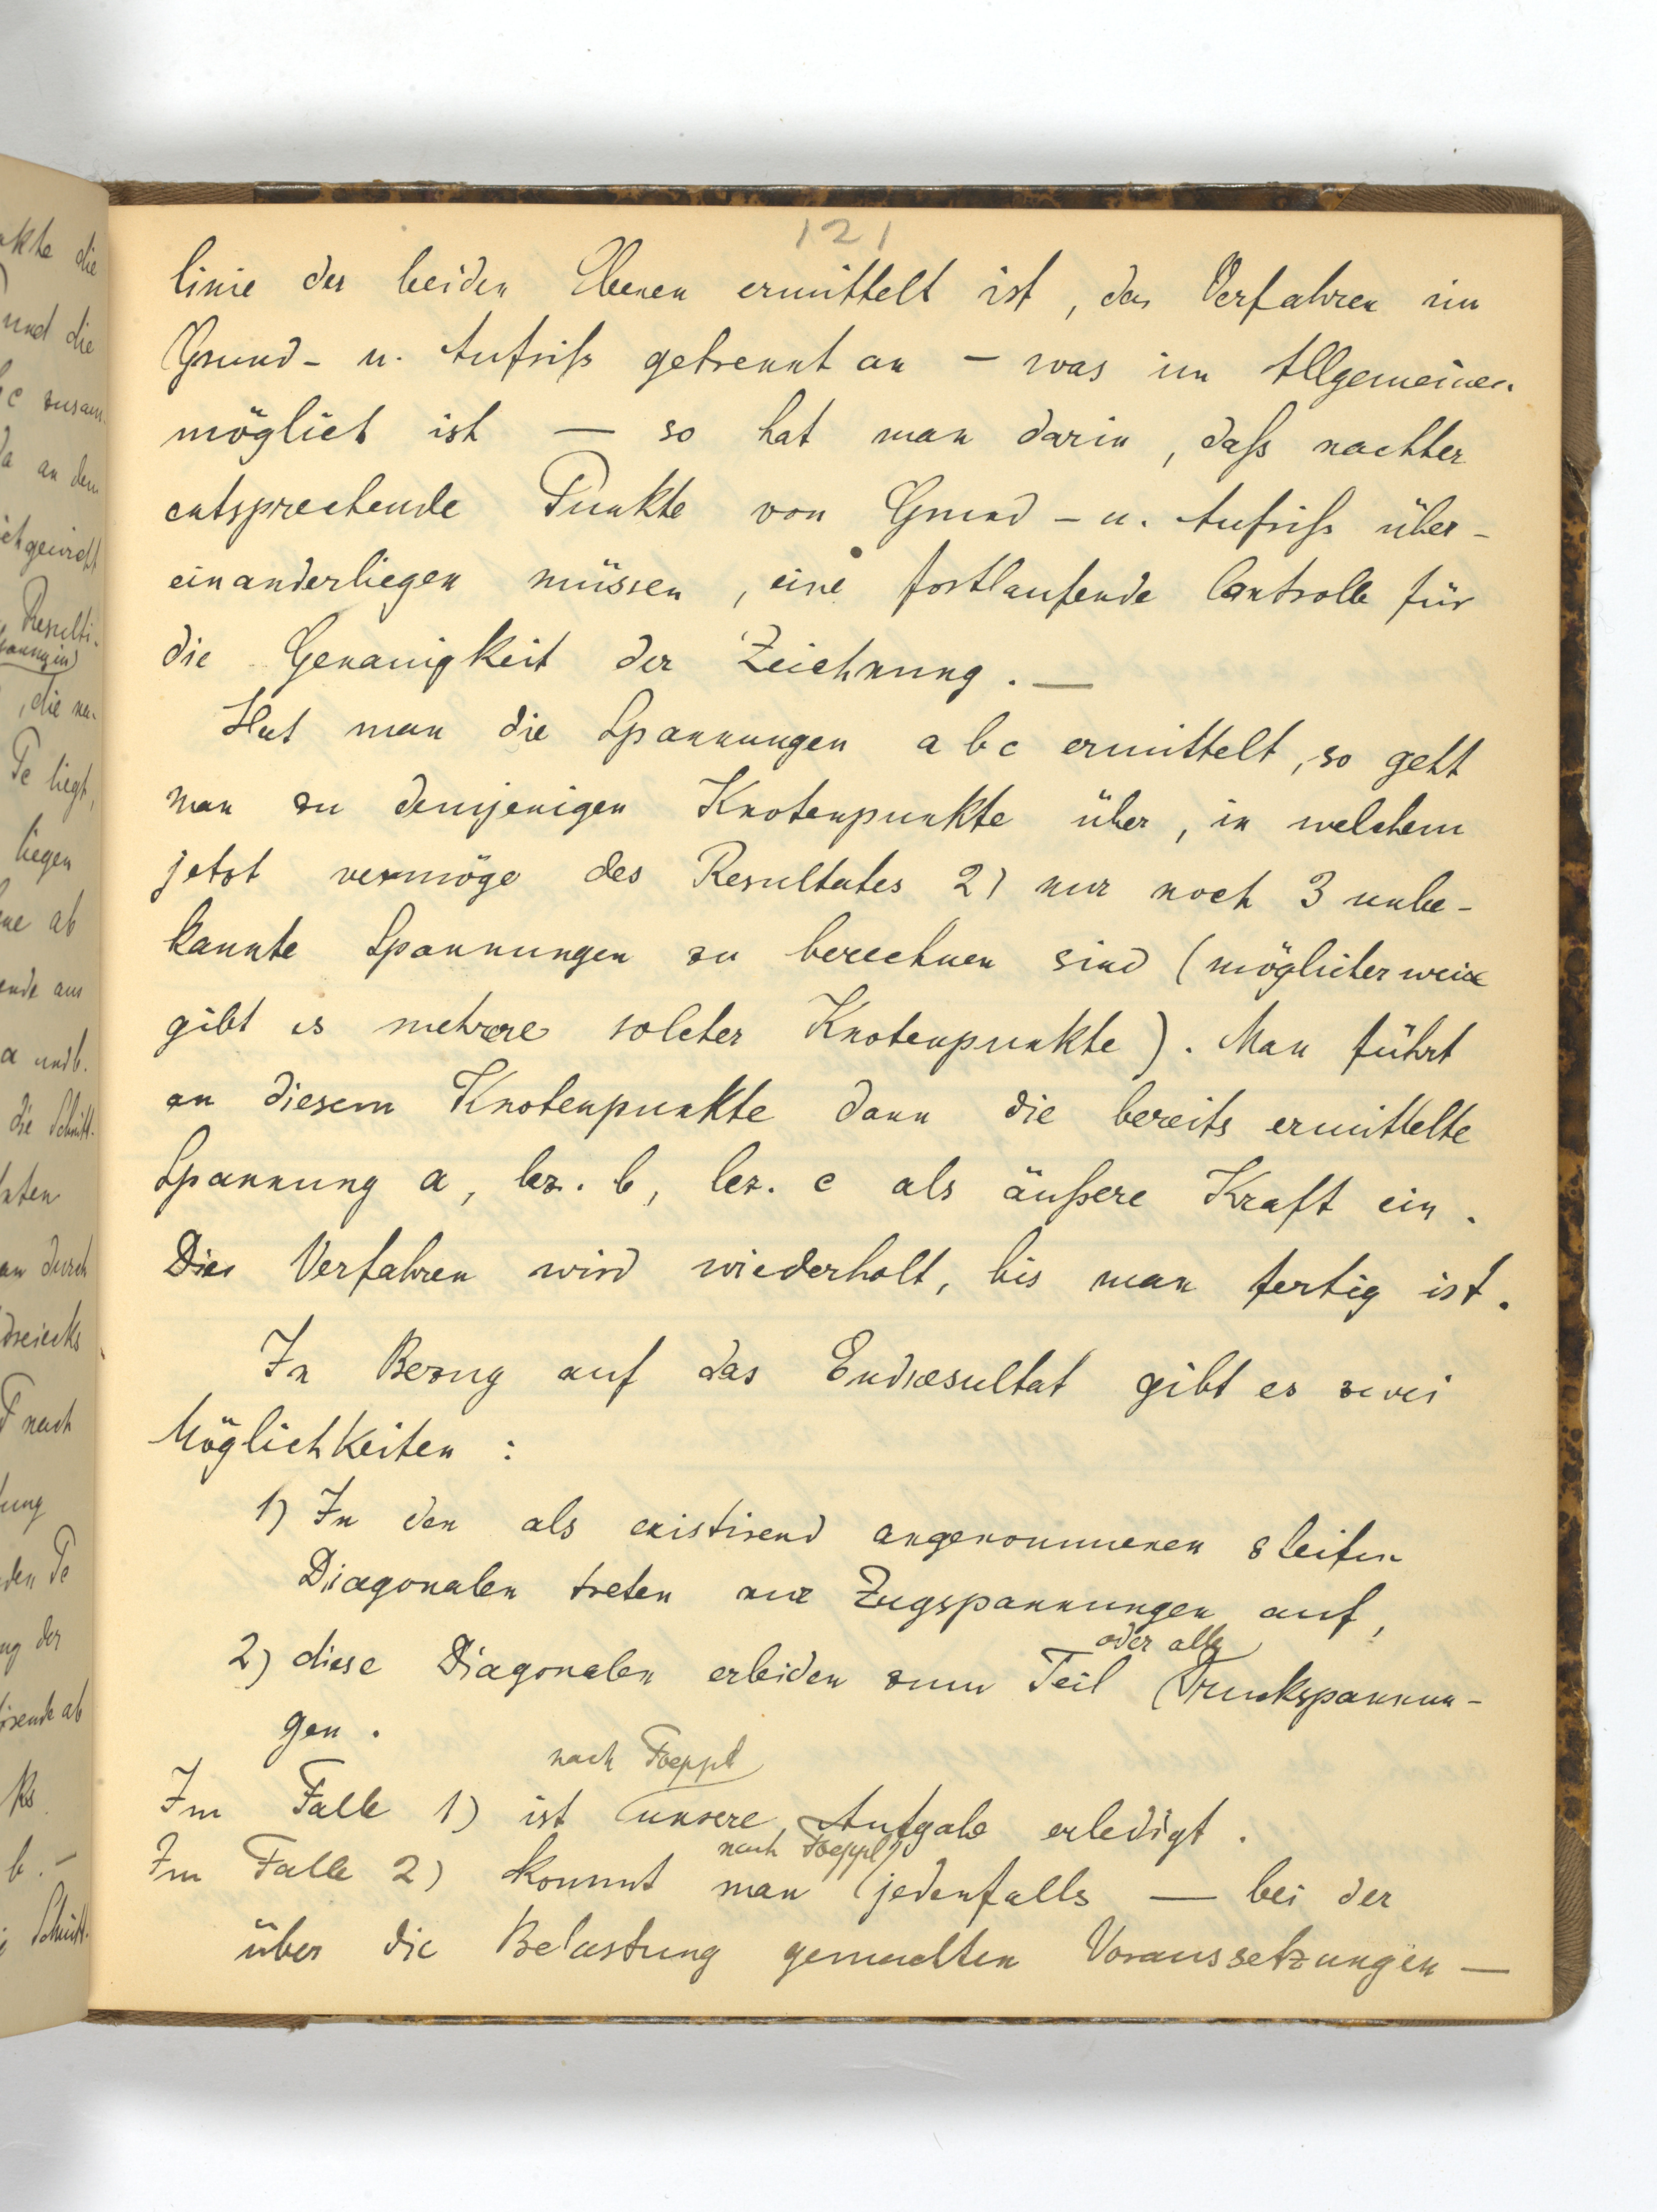 121
linie der beiden Ebenen ermittelt ist, das Verfahren im
Grund- u. Aufriß getrennt an - was im Allgemeinen
möglich ist — so hat man darin, daß nachher
entsprechende Punkte von Grund - u. Aufriß über-
einanderliegen müssen, eine fortlaufende Controlle für
die Genauigkeit der Zeichnung. —
Hat man die Spannungen a b c ermittelt, so geht
man zu demjenigen Knotenpunkte über, in welchem
jetzt vermöge des Resultates 2) nur noch 3 unbe-
kannte Spannungen zu berechnen sind (möglicherweise
gibt es mehrere solcher Knotenpunkte). Man führt
an diesem Knotenpunkte dann die bereits ermittelte
Spannung a, bez. b, bez. c als äußere Kraft ein.
Dies Verfahren wird wiederholt, bis man fertig ist.
In Bezug auf das Endresultat gibt es zwei
Möglichkeiten :
1) In den als existirend angenommenen steifen
Diagonalen treten nur Zugspannungen auf,
oder alle
2) diese Diagonalen erleiden zum Teil Druckspannun-
gen.
nach Foeppl
Im Falle 1) ist unsere Aufgabe erledigt.
nach Foeppl
Im Falle 2) kommt man jedenfalls — bei der
über die Belastung gemachten Voraussetzungen —
kte die
und die
c zusam-
da an dem
ichgewicht
Resulti-
, die na-
Te liegt,
liegen
ne ab
ende aus
a und b.
die Schnitt-
nten
an durch
dreiecks
T nach
tung
den Te
ng der
ks
b. -
Schnitt-